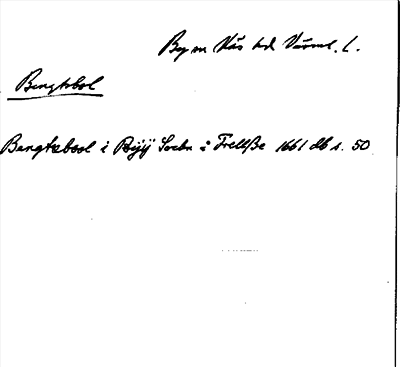 By sn Näs hd Värml. l.
Bengtsbol
Bengtzbool i Byij Sochn i Frelsse 1661 db s. 50